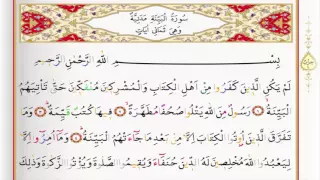 سُورَةُ الْبَيِّنَةِ مَدَنِيَّةٌ
وَهِيَ ثَمَانِي آيَاتٍ
بِسْمِ اللّٰهِ الرَّحْمٰنِ الرَّحِيمِ
لَمْ يَكُنِ الَّذِينَ كَفَرُوا مِنْ اَهْلِ الْكِتَابِ وَالْمُشْرِكِينَ مُنْفَكِّينَ حَتّٰى تَأْتِيَهُمُ
الْبَيِّنَةُ ﴿١﴾ رَسُولٌ مِنَ اللّٰهِ يَتْلُوا صُحُفًا مُطَهَّرَةً ﴿٢﴾ فِيهَا كُتُبٌ قَيِّمَةٌ ﴿٣﴾ وَمَا
تَفَرَّقَ الَّذِينَ اُو۫تُوا الْكِتَابَ اِلَّا مِنْ بَعْدِ مَا جَاءَتْهُمُ الْبَيِّنَةُ ﴿٤﴾ وَمَا اُمِرُوا اِلَّا
لِيَعْبُدُوا اللّٰهَ مُخْلِصِينَ لَهُ الدِّينَ حُنَفَاءَ وَيُقِيمُوا الصَّلٰوةَ وَيُؤْتُوا الزَّكٰوةَ وَذٰلِكَ